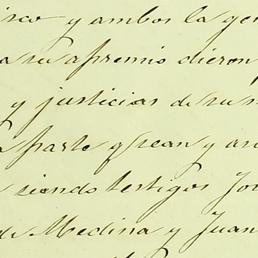 isco y ambos la gen
a su apremio dieron
y justicias de su m
parte q sean y an
siendo testigos Jo
de Medina y Juan